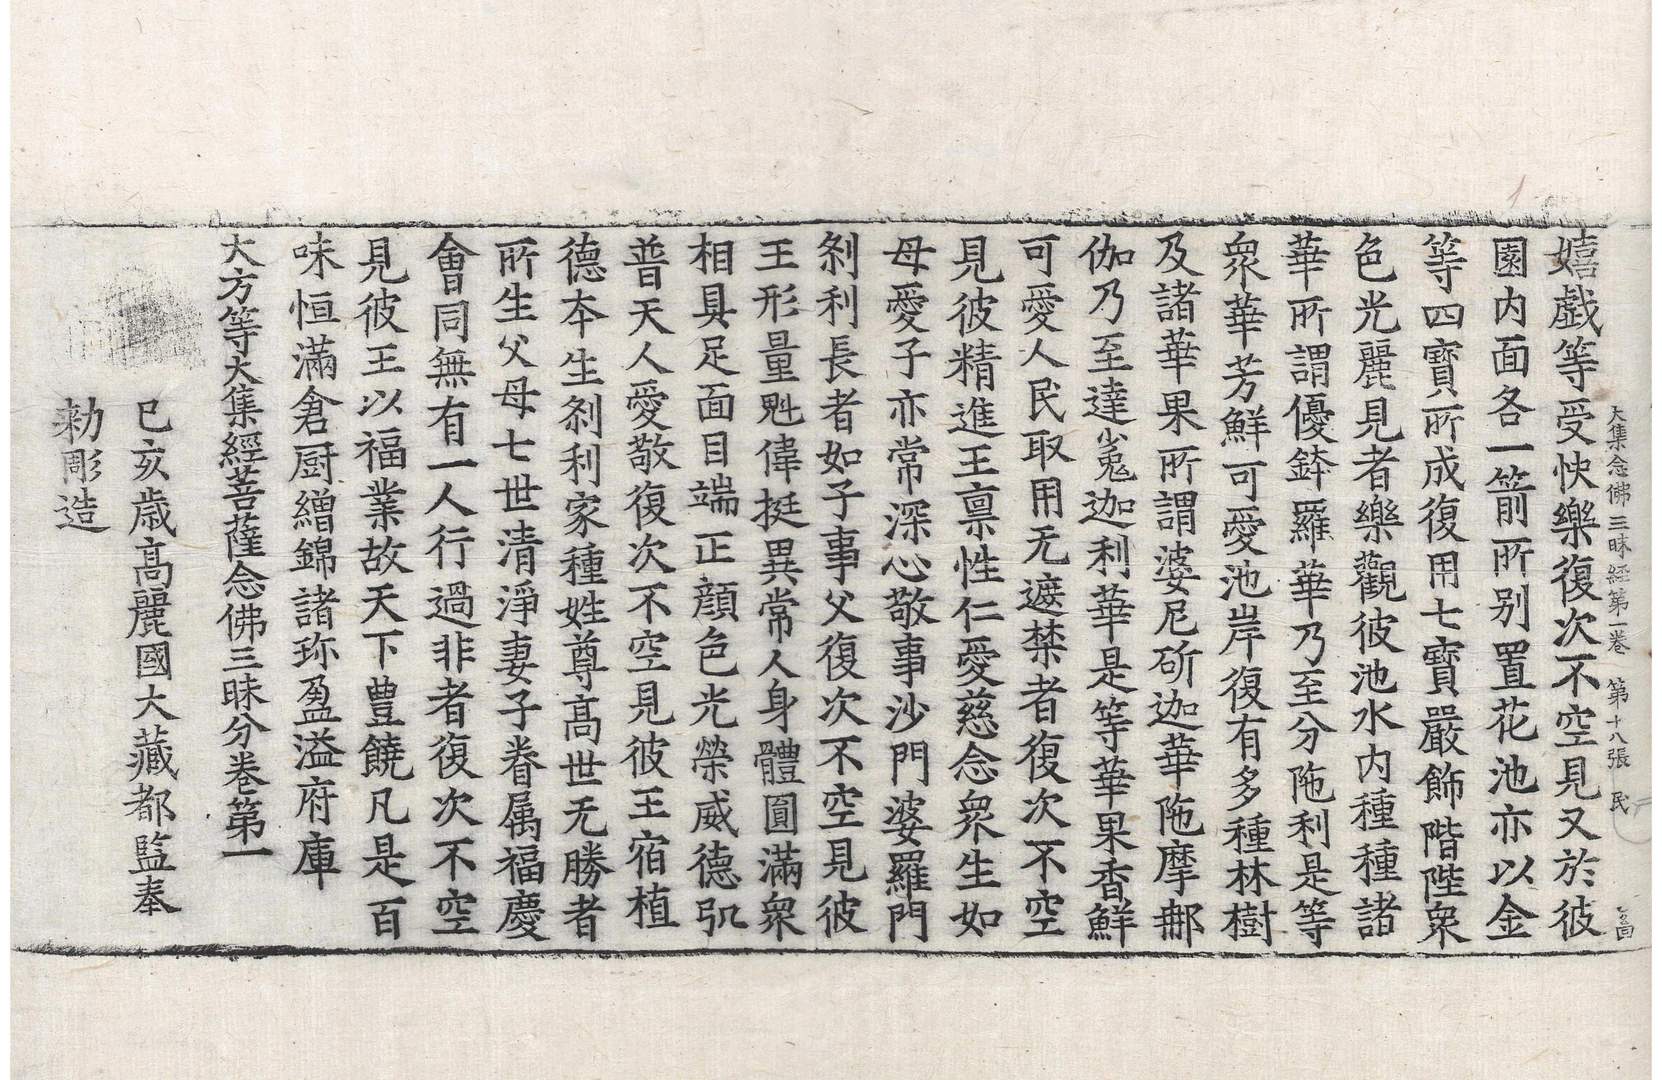 大集念佛三昧経第一巻 第十八張 民
嬉戲等受快樂復次不空見又於彼
園内面各一箭所别置花池亦以金
等四寶所成復用七寶嚴飾階陛衆
色光麗見者樂觀彼池水内種種諸
華所謂優鉢羅華乃至分陁利是等
衆華芳鮮可愛池岸復有多種林樹
及諸華果所謂婆尼斫迦華陁摩那
伽乃至達嵬迦利華是等華果香鮮
可愛人民取用无遮禁者復次不空
見彼精進王禀性仁愛慈念衆生如
母愛子亦常深心敬事沙門婆羅門
刹利長者如子事父復次不空見彼
王形量魁偉挺異常人身體圓滿衆
相具足面目端正顔色光榮威德巍
普天人愛敬復次不空見彼王宿植
德本生刹利家種姓尊高世无勝者
所生父母七世清淨妻子眷属福慶
會同無有一人行過非者復次不空
見彼王以福業故天下豊饒凡是百
味恒滿倉厨繒錦諸珎盈溢府庫
大方等大集經菩薩念佛三昧分卷第一
己亥歲高麗國大藏都監奉
勅彫造